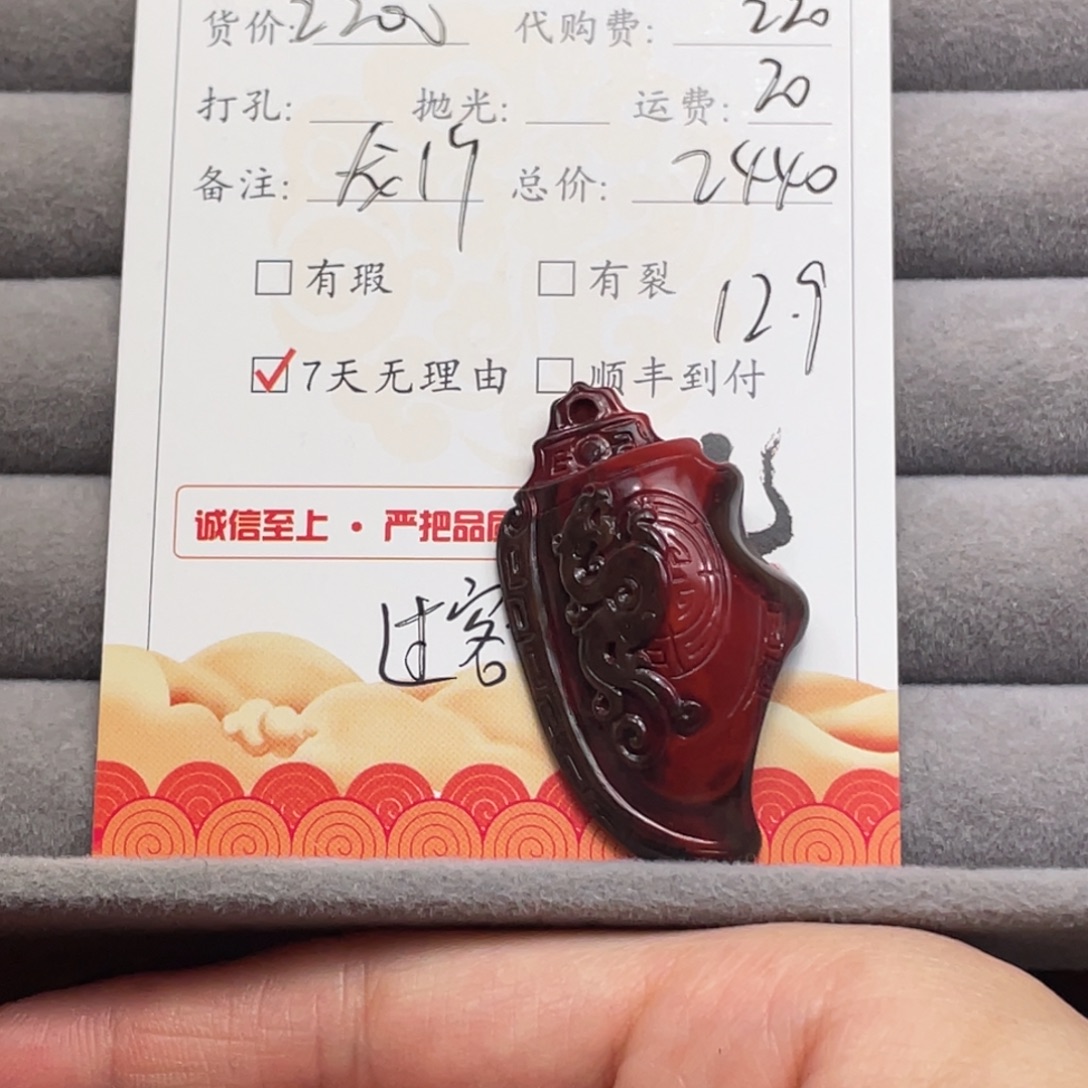 货价: 2200 代购费: 220
打孔: 抛光: 运费: 20
备注: 总价: 2440
有瑕 有裂
12.9
7天无理由 顺丰到付
诚信至上 · 严把品质
过客